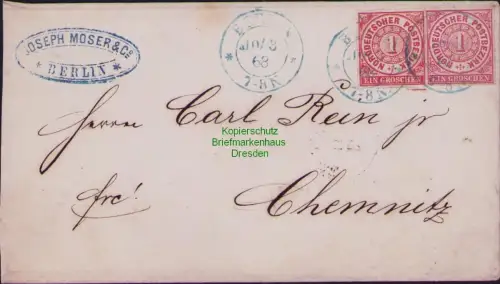 JOSEPH MOSER & Co
BERLIN
10/3
68
7-8N
NORDDEUTSCHER POSTBEZIRK
1
EIN GROSCHEN
NORDDEUTSCHER POSTBEZIRK
1
EIN GROSCHEN
7-8N
Herrn Carl Rein jr
Kopierschutz
Briefmarkenhaus
Dresden
frc!
Chemnitz